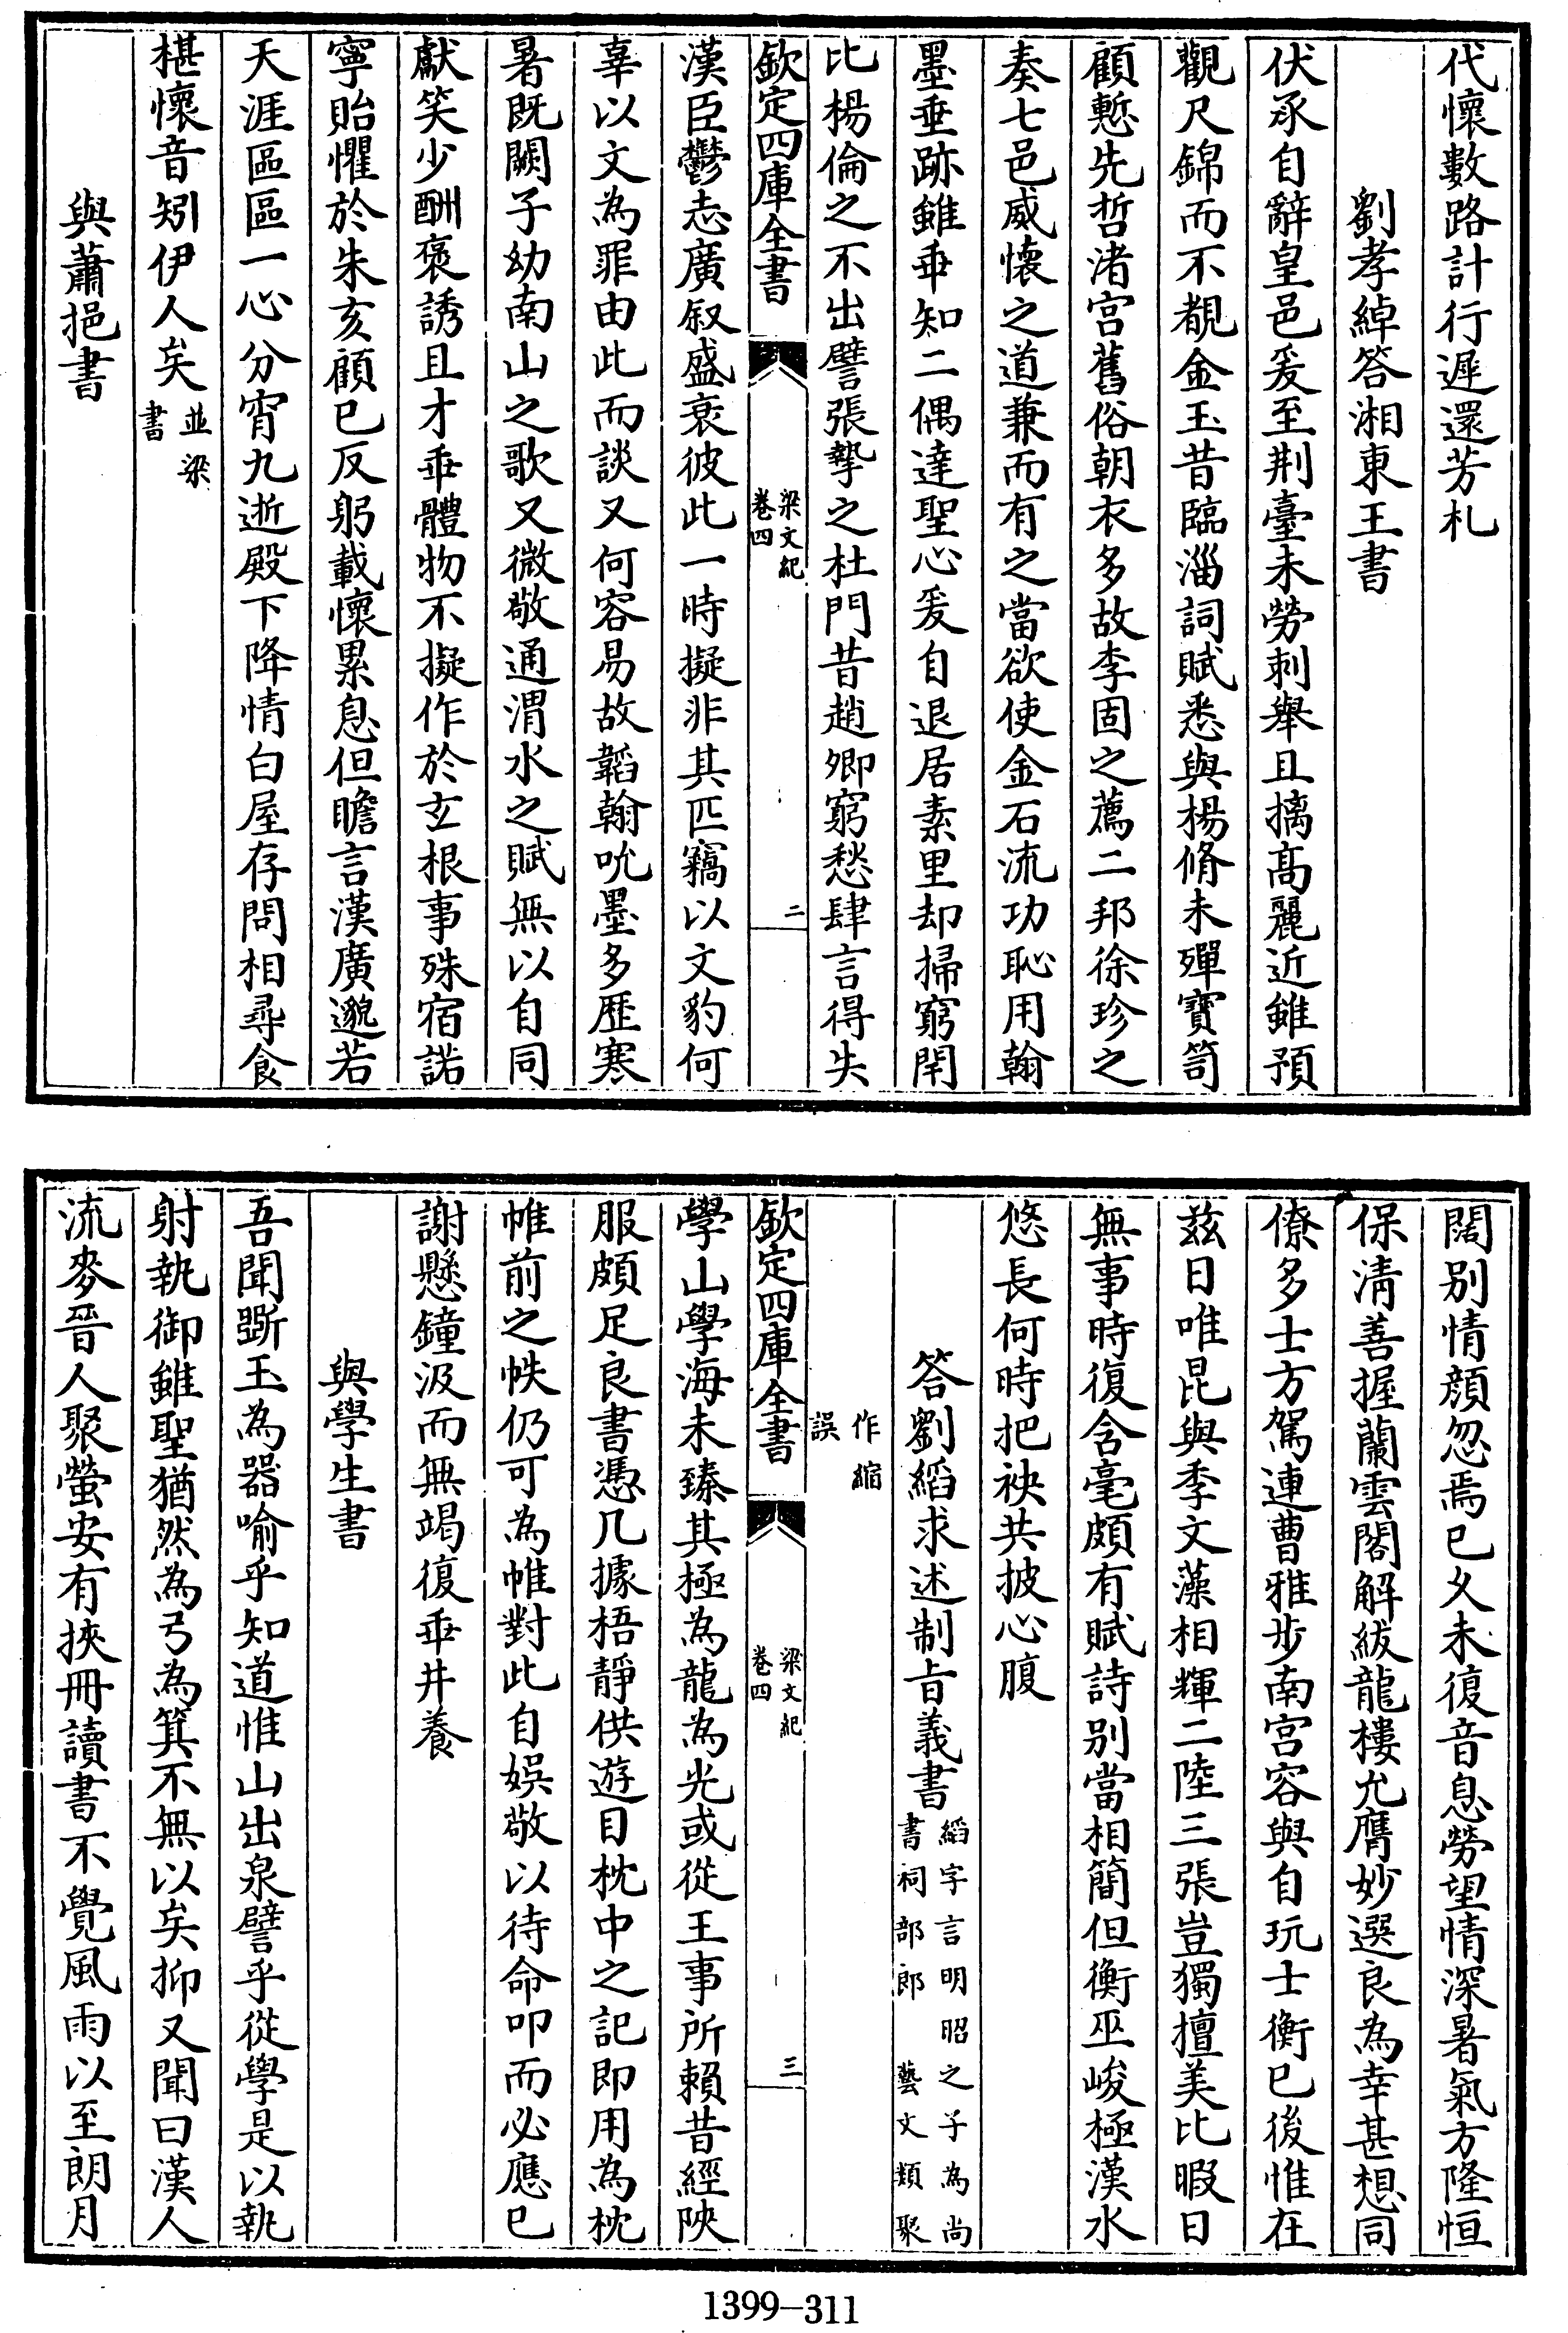 代懷數路計行遲還芳札
劉孝綽答湘東王書
伏承自辭皇邑爰至荆臺未勞刺舉且摛髙麗近雖預
觀尺錦而不覩金玉昔臨淄詞賦悉與楊脩未殫寶笥
顧慙先哲渚宫舊俗朝衣多故李固之薦二邦徐珍之
奏七邑威懷之道兼而有之當欲使金石流功恥用翰
墨垂跡雖乖知二偶達聖心爰自退居素里却掃窮閈
比楊倫之不出譬張摯之杜門昔趙卿窮愁肆言得失
欽定四庫全書
梁文紀
卷四
二
漢臣鬱志廣叙盛衰彼此一時擬非其匹竊以文豹何
辜以文為罪由此而談又何容易故韜翰吮墨多歴寒
暑既闕子幼南山之歌又微敬通渭水之賦無以自同
獻笑少酬褒誘且才乖體物不擬作於玄根事殊宿諾
寧貽懼於朱亥顧已反躬載懷累息但瞻言漢廣邈若
天涯區區一心分宵九逝殿下降情白屋存問相尋食
椹懷音矧伊人矣並梁
書
與蕭挹書
闊别情顔忽焉已乆未復音息勞望情深暑氣方隆恒
保清善握蘭雲閣解紱龍樓允膺妙選良為幸甚想同
僚多士方駕連曹雅步南宫容與自玩士衡已後惟在
兹日唯昆與季文藻相輝二陸三張豈獨擅美比暇日
無事時復含毫頗有賦詩别當相簡但衡巫峻極漢水
悠長何時把袂共披心腹
答劉縚求述制㫖義書縚字言明昭之子為尚
書祠部郎 藝文類聚
作縮
誤
欽定四庫全書
梁文紀
卷四
三
學山學海未臻其極為龍為光或從王事所賴昔經陜
服頗足良書憑几據梧靜供遊目枕中之記即用為枕
帷前之帙仍可為帷對此自娱敬以待命叩而必應已
謝懸鐘汲而無竭復乖井養
與學生書
吾聞斵玉為器喻乎知道惟山出泉譬乎從學是以執
射執御雖聖猶然為弓為箕不無以矣抑又聞曰漢人
流麥晉人聚螢安有挾冊讀書不覺風雨以至朗月
1399—311